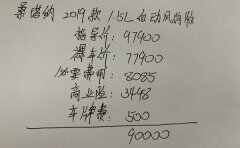 桑塔纳 2019款 1.5L 自动风尚版
指导价: 97900
裸车价: 77900
必要费用: 8085
商业险: 3498
车牌费: 500
90000